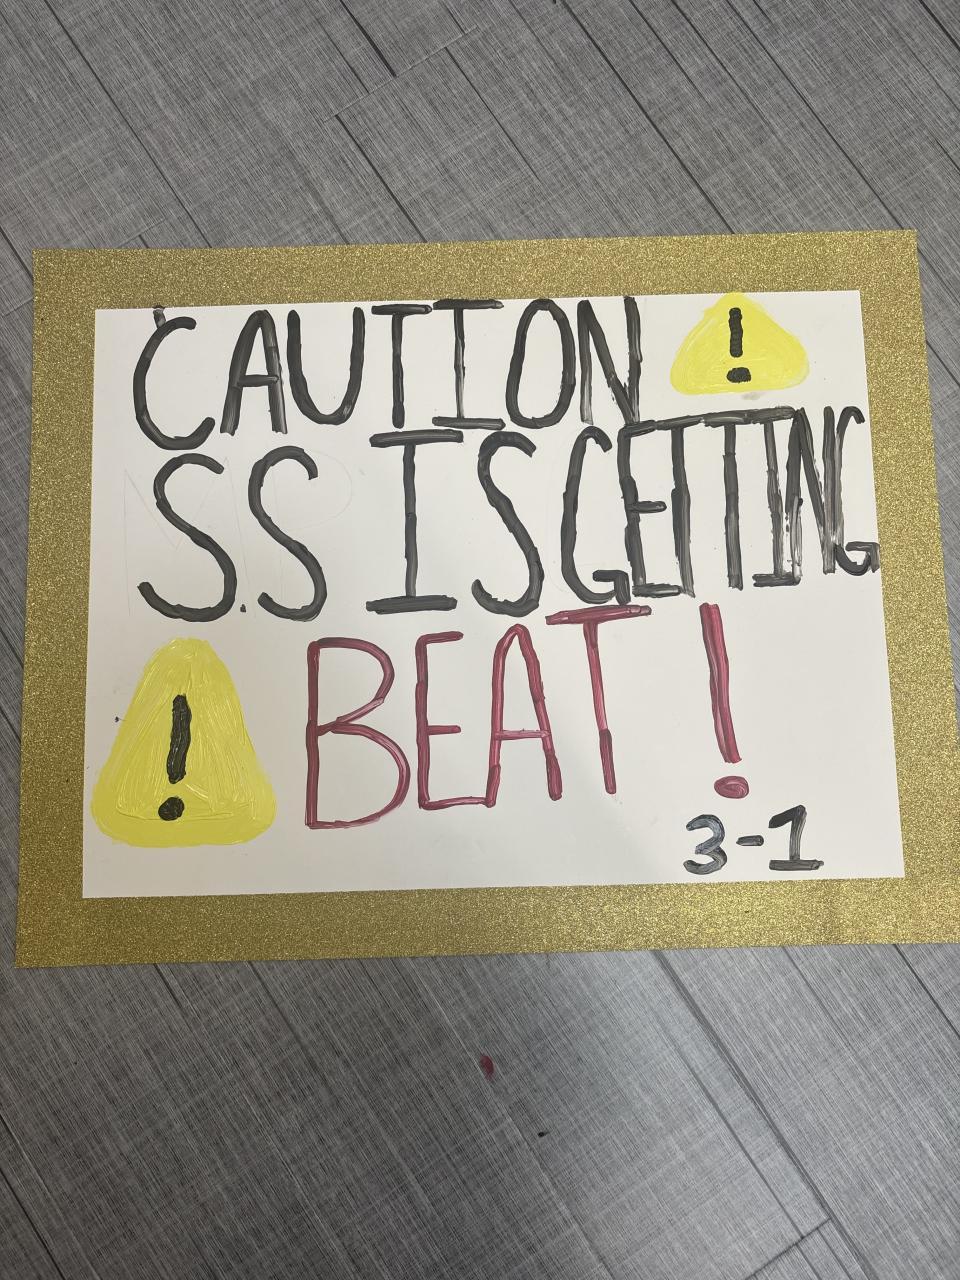 CAUTION !
S.S IS GETTING
! BEAT!
3-1